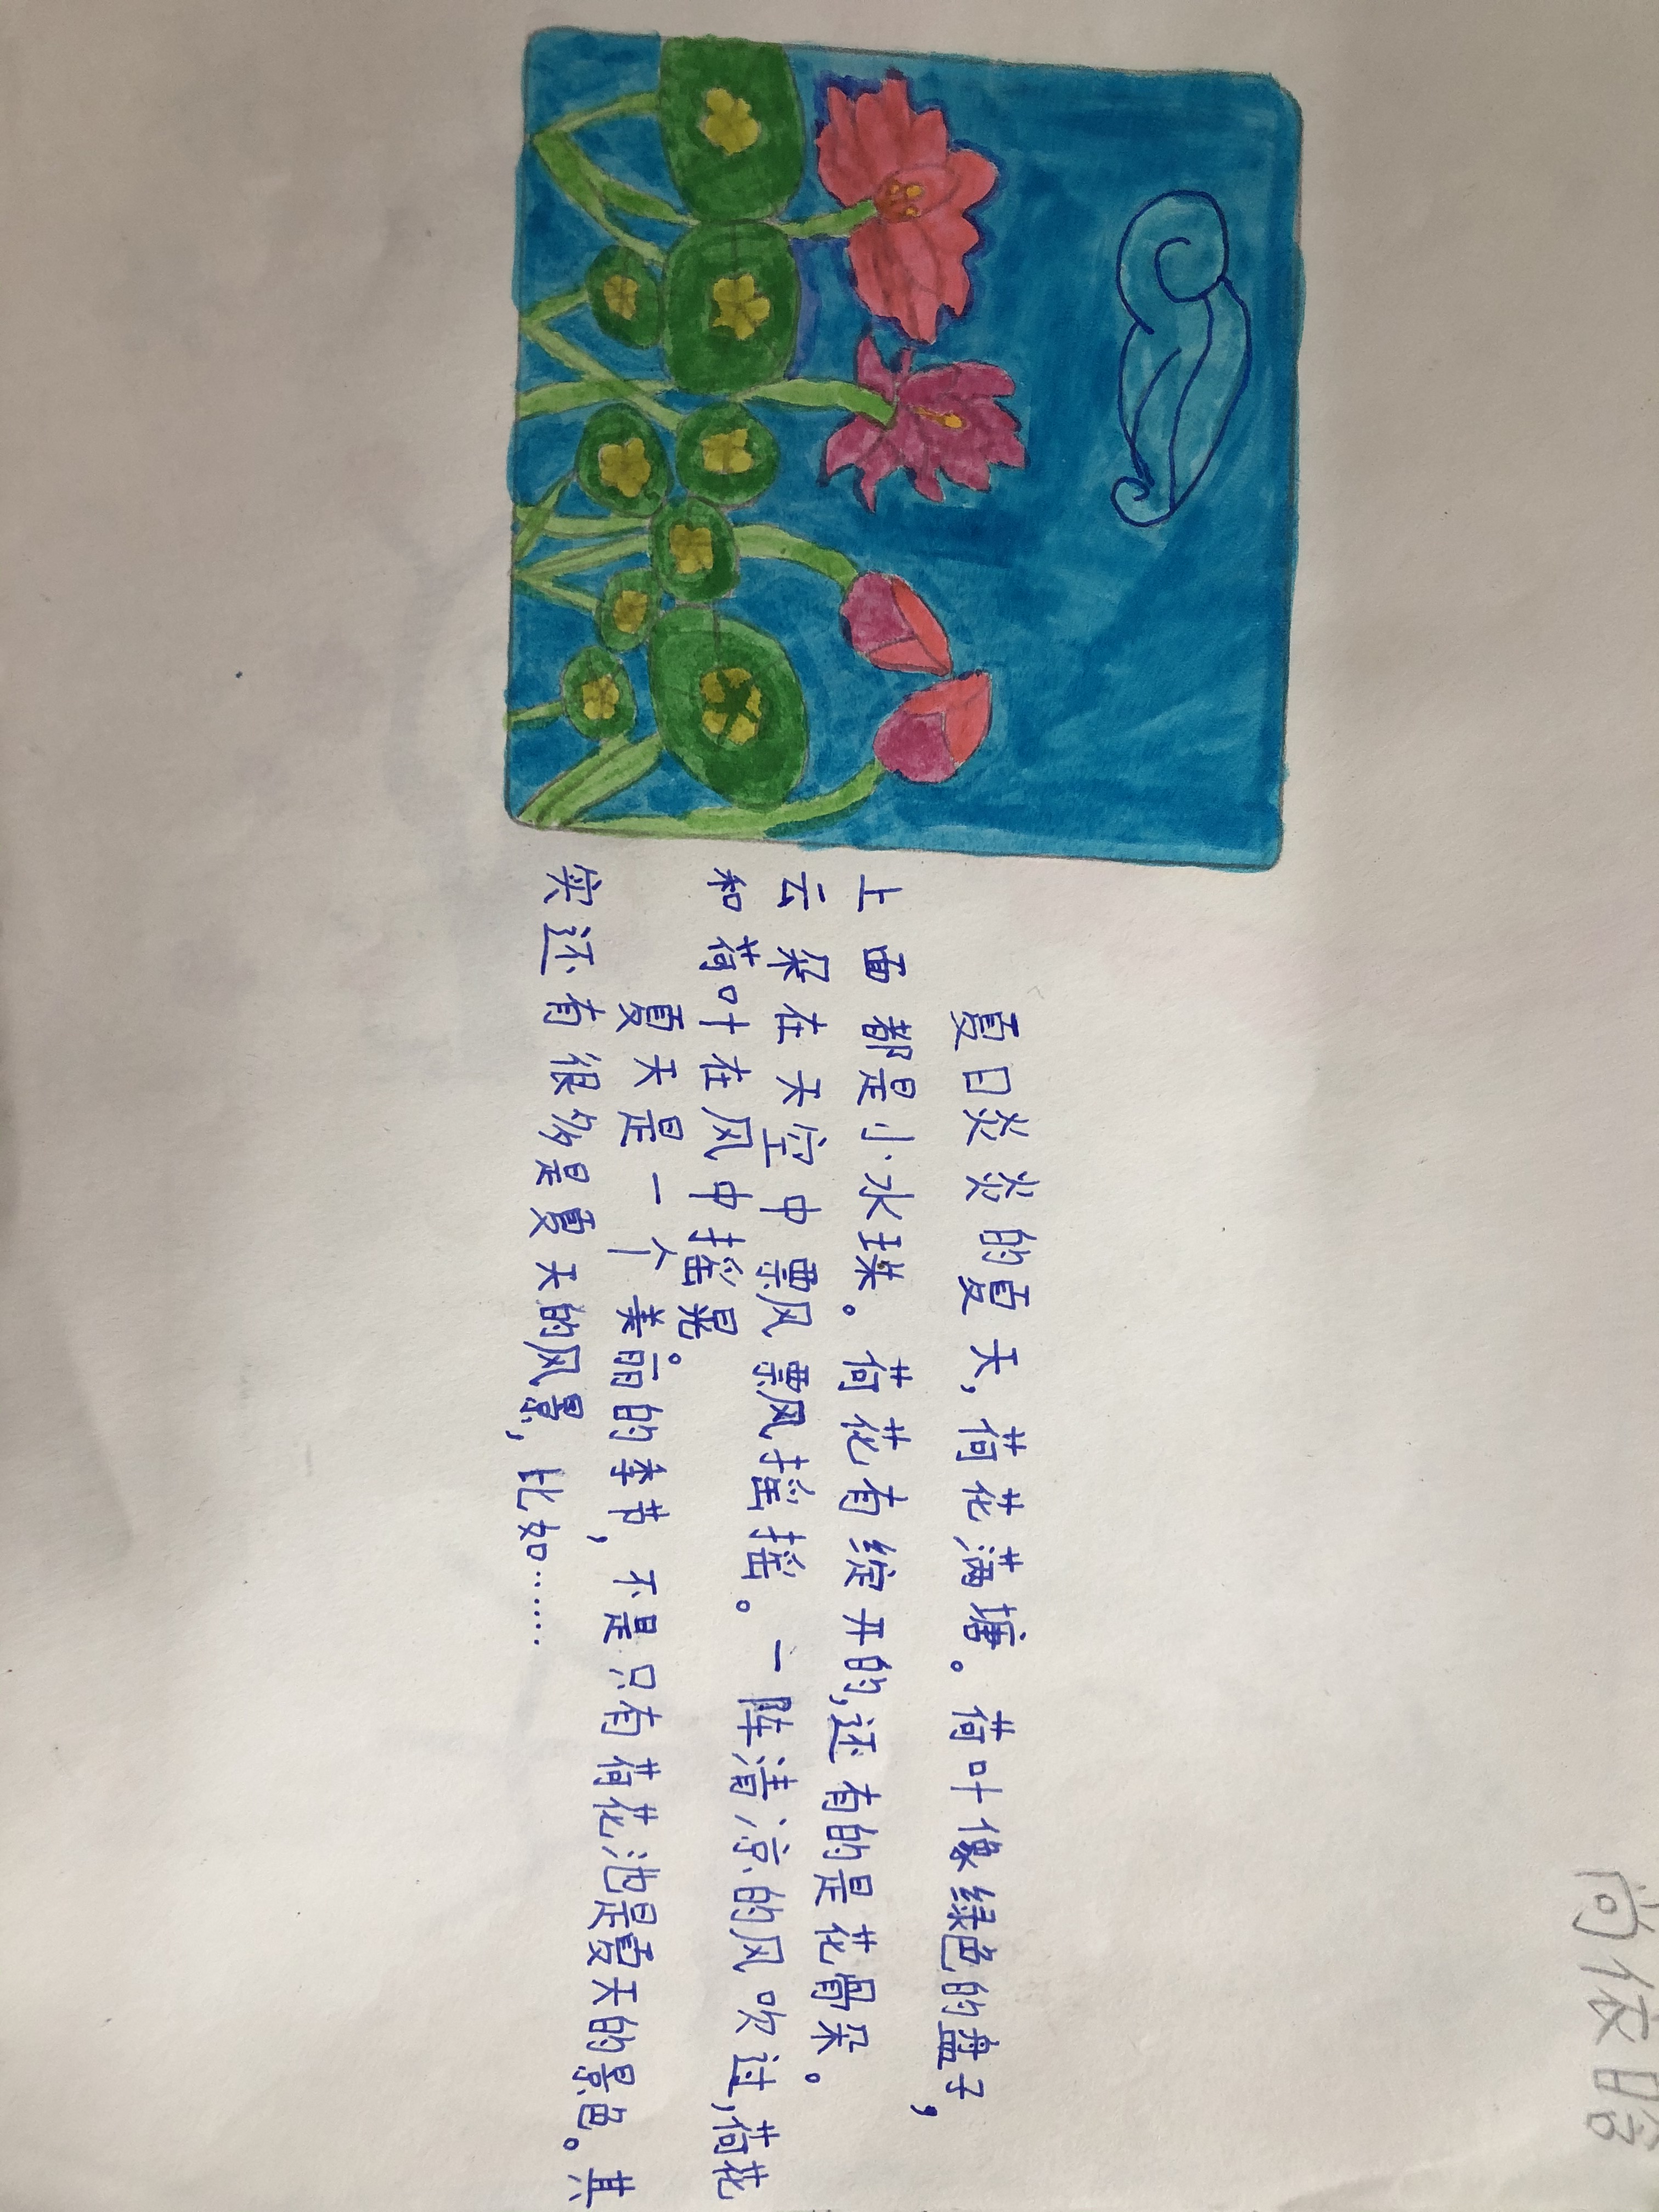 尚依晗
夏日炎炎的夏天，荷花满塘。荷叶像绿色的盘子，
上面都是小水珠。荷花有绽开的，还有的是花骨朵。
云朵在天空中飘飘摇摇。一阵清凉的风吹过，荷花
和荷叶在风中摇晃。
夏天是一个美丽的季节，不是只有荷花池是夏天的景色。其
实还有很多是夏天的风景，比如……